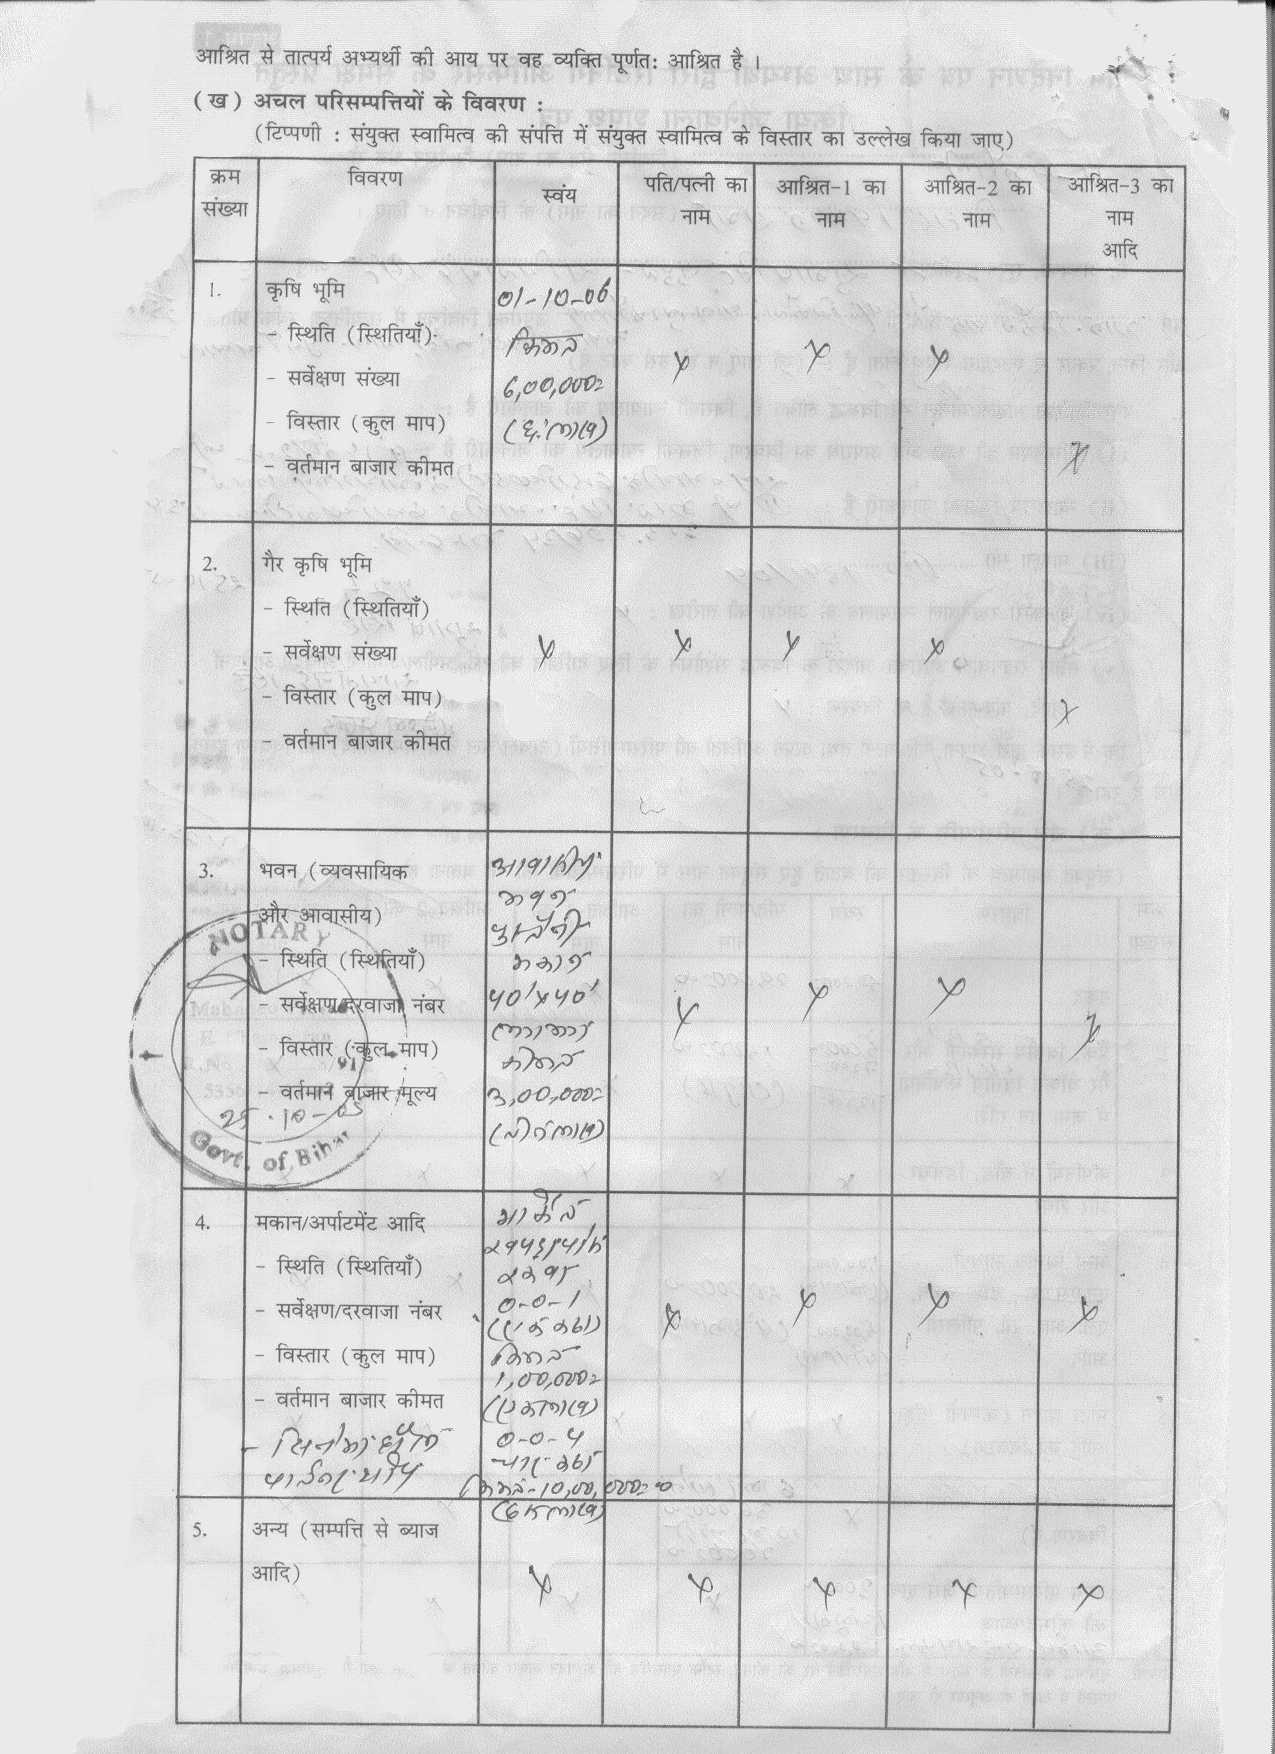 आश्रित से तात्पर्य अभ्यर्थी की आय पर वह व्यक्ति पूर्णत: आश्रित है ।
(ख) अचल परिसम्पत्तियों के विवरण :
(टिप्पणी : संयुक्त स्वामित्व की संपत्ति में संयुक्त स्वामित्व के विस्तार का उल्लेख किया जाए)
क्रम संख्या
विवरण
स्वंय
पति/पत्नी का नाम
आश्रित-1 का नाम
आश्रित-2 का नाम
आश्रित-3 का नाम आदि
1.
कृषि भूमि
- स्थिति (स्थितियाँ)
- सर्वेक्षण संख्या
- विस्तार (कुल माप)
- वर्तमान बाजार कीमत
01-10-06
किमत
6,00,000=
(छः लाख)
x x x x
2.
गैर कृषि भूमि
- स्थिति (स्थितियाँ)
- सर्वेक्षण संख्या
- विस्तार (कुल माप)
- वर्तमान बाजार कीमत
x x x x x
3.
भवन (व्यवसायिक
और आवासीय)
- स्थिति (स्थितियाँ)
- सर्वेक्षण/दरवाजा नंबर
- विस्तार (कुल माप)
- वर्तमान बाजार मूल्य
भवन
पुस्तैनी
मकान
40'x40'
कीमत
3,00,000=
(तीन लाख)
x x x x
NOTARY
25-10-05
Govt. of Bihar
4.
मकान/अर्पाटमेंट आदि
- स्थिति (स्थितियाँ)
- सर्वेक्षण/दरवाजा नंबर
- विस्तार (कुल माप)
- वर्तमान बाजार कीमत
- सिनेमा हॉल
मार्केट
रकवा
0-0-1
(एक कठा)
किमत
1,00,000=
(एक लाख)
0-0-4
चार कठा
किमत-10,00,000=00
(दस लाख)
x x x x
5.
अन्य (सम्पत्ति से ब्याज
आदि)
x x x x x